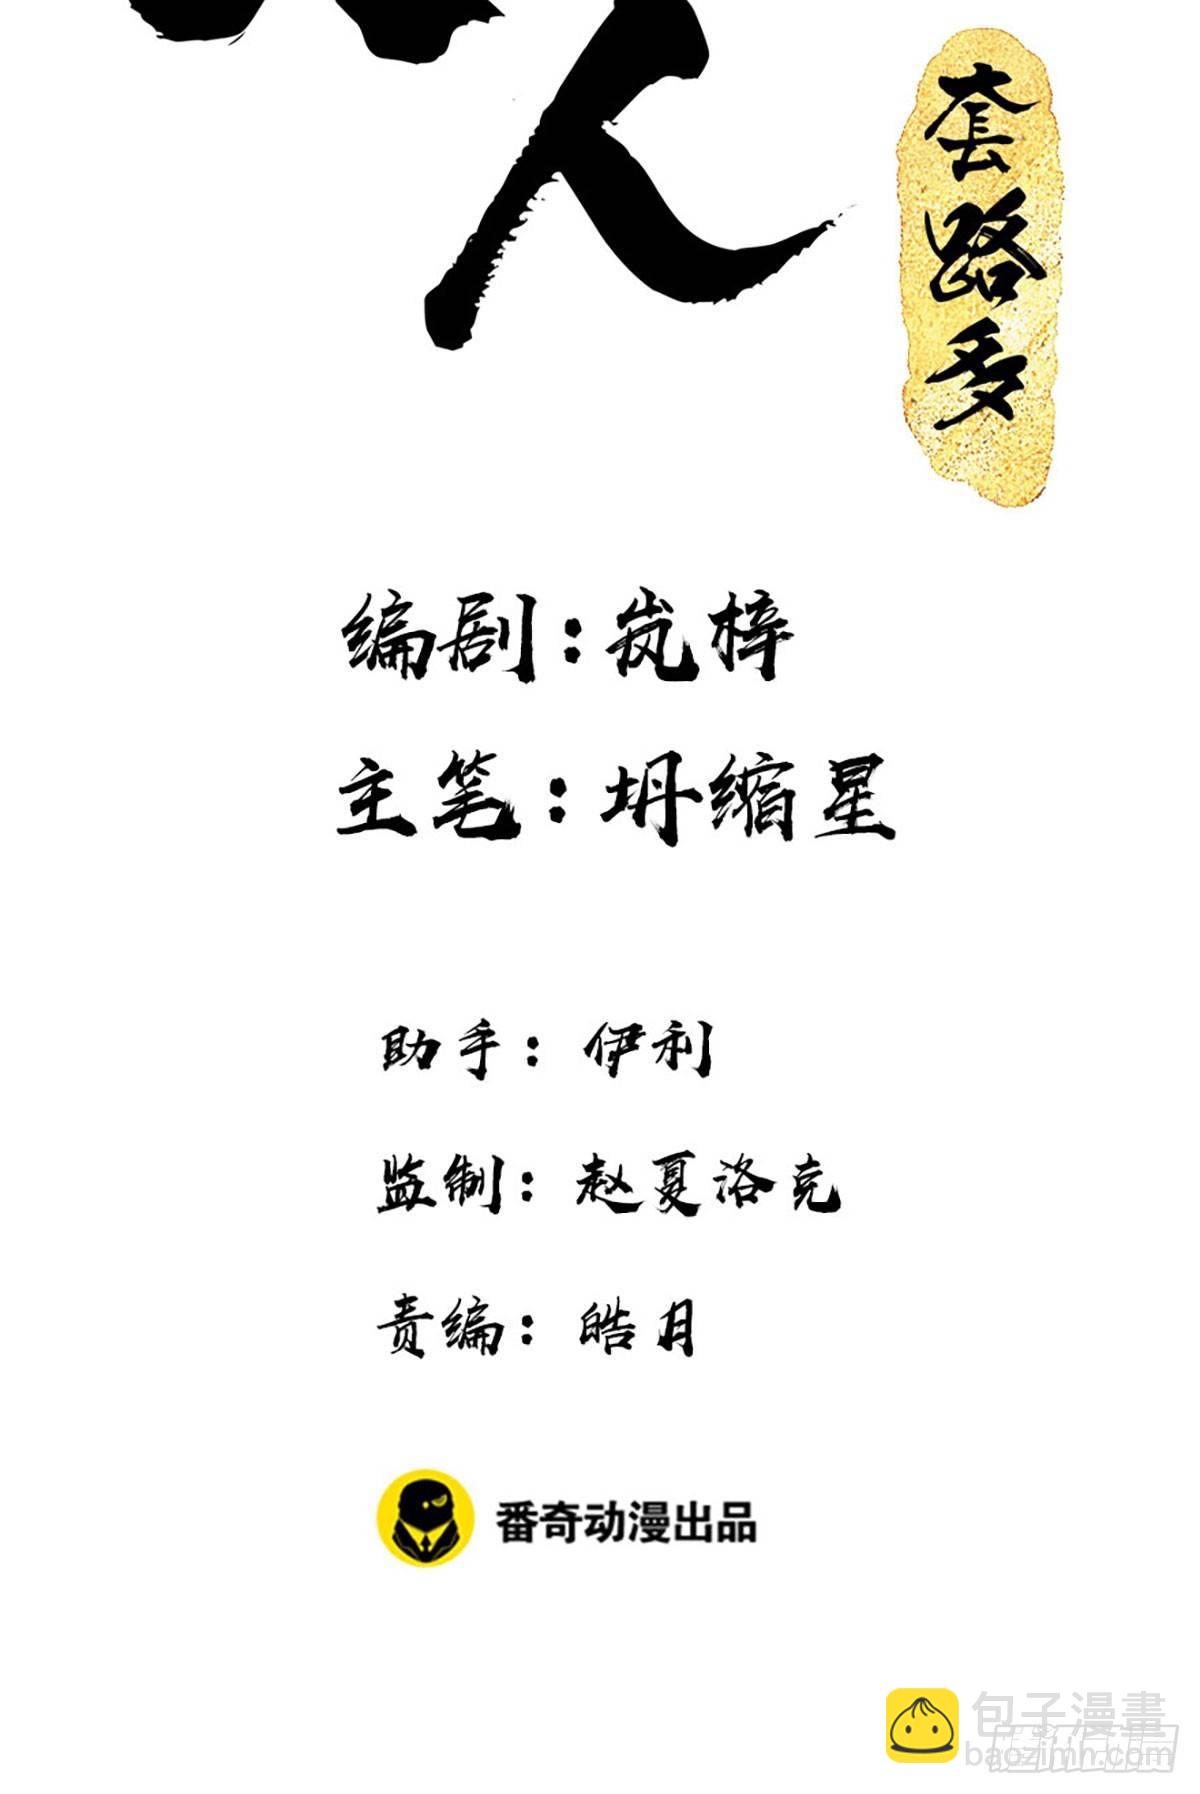 人
套路多
编剧：岚梓
主笔：坍缩星
助手：伊利
监制：赵夏洛克
责编：皓月
番奇动漫出品
包子漫畫
baozimh.com